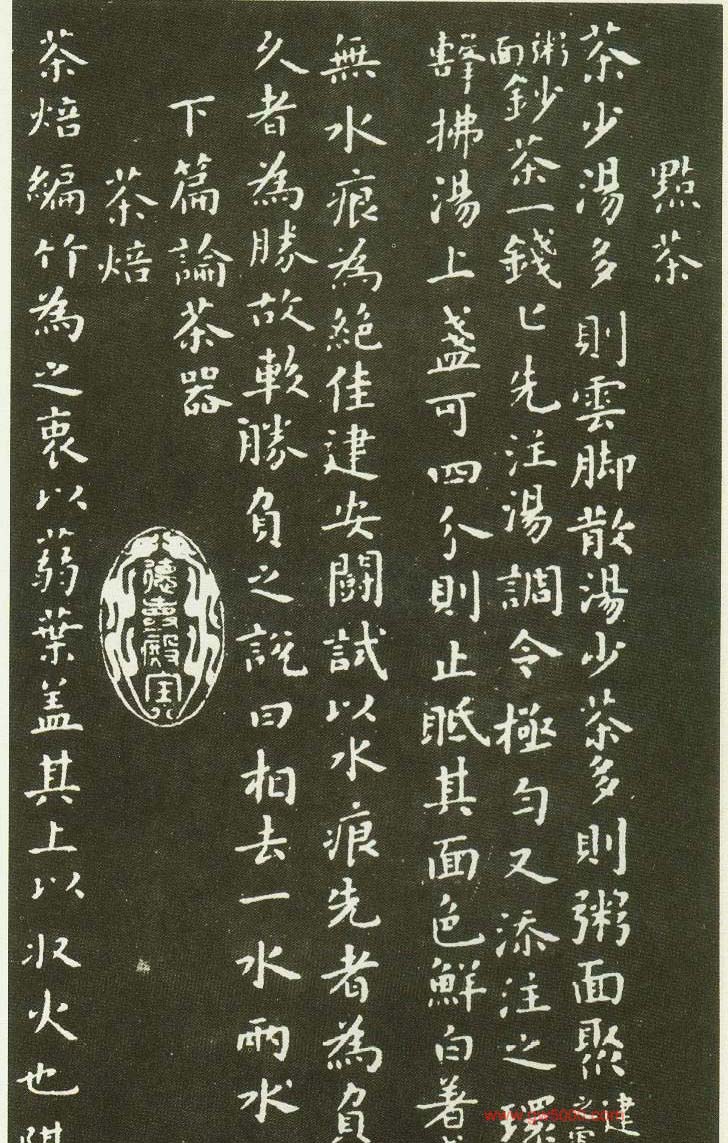 點茶
茶少湯多則雲脚散湯少茶多則粥面聚建
粥面鈔茶一錢匕先注湯調令極勻又添注之環
擊拂湯上盞可四分則止眂其面色鮮白著
無水痕為絕佳建安鬬試以水痕先者為負
久者為勝故較勝負之說曰相去一水兩水
下篇論茶器
茶焙
茶焙編竹為之裹以蒻葉盖其上以收火也隔
德壽殿寶